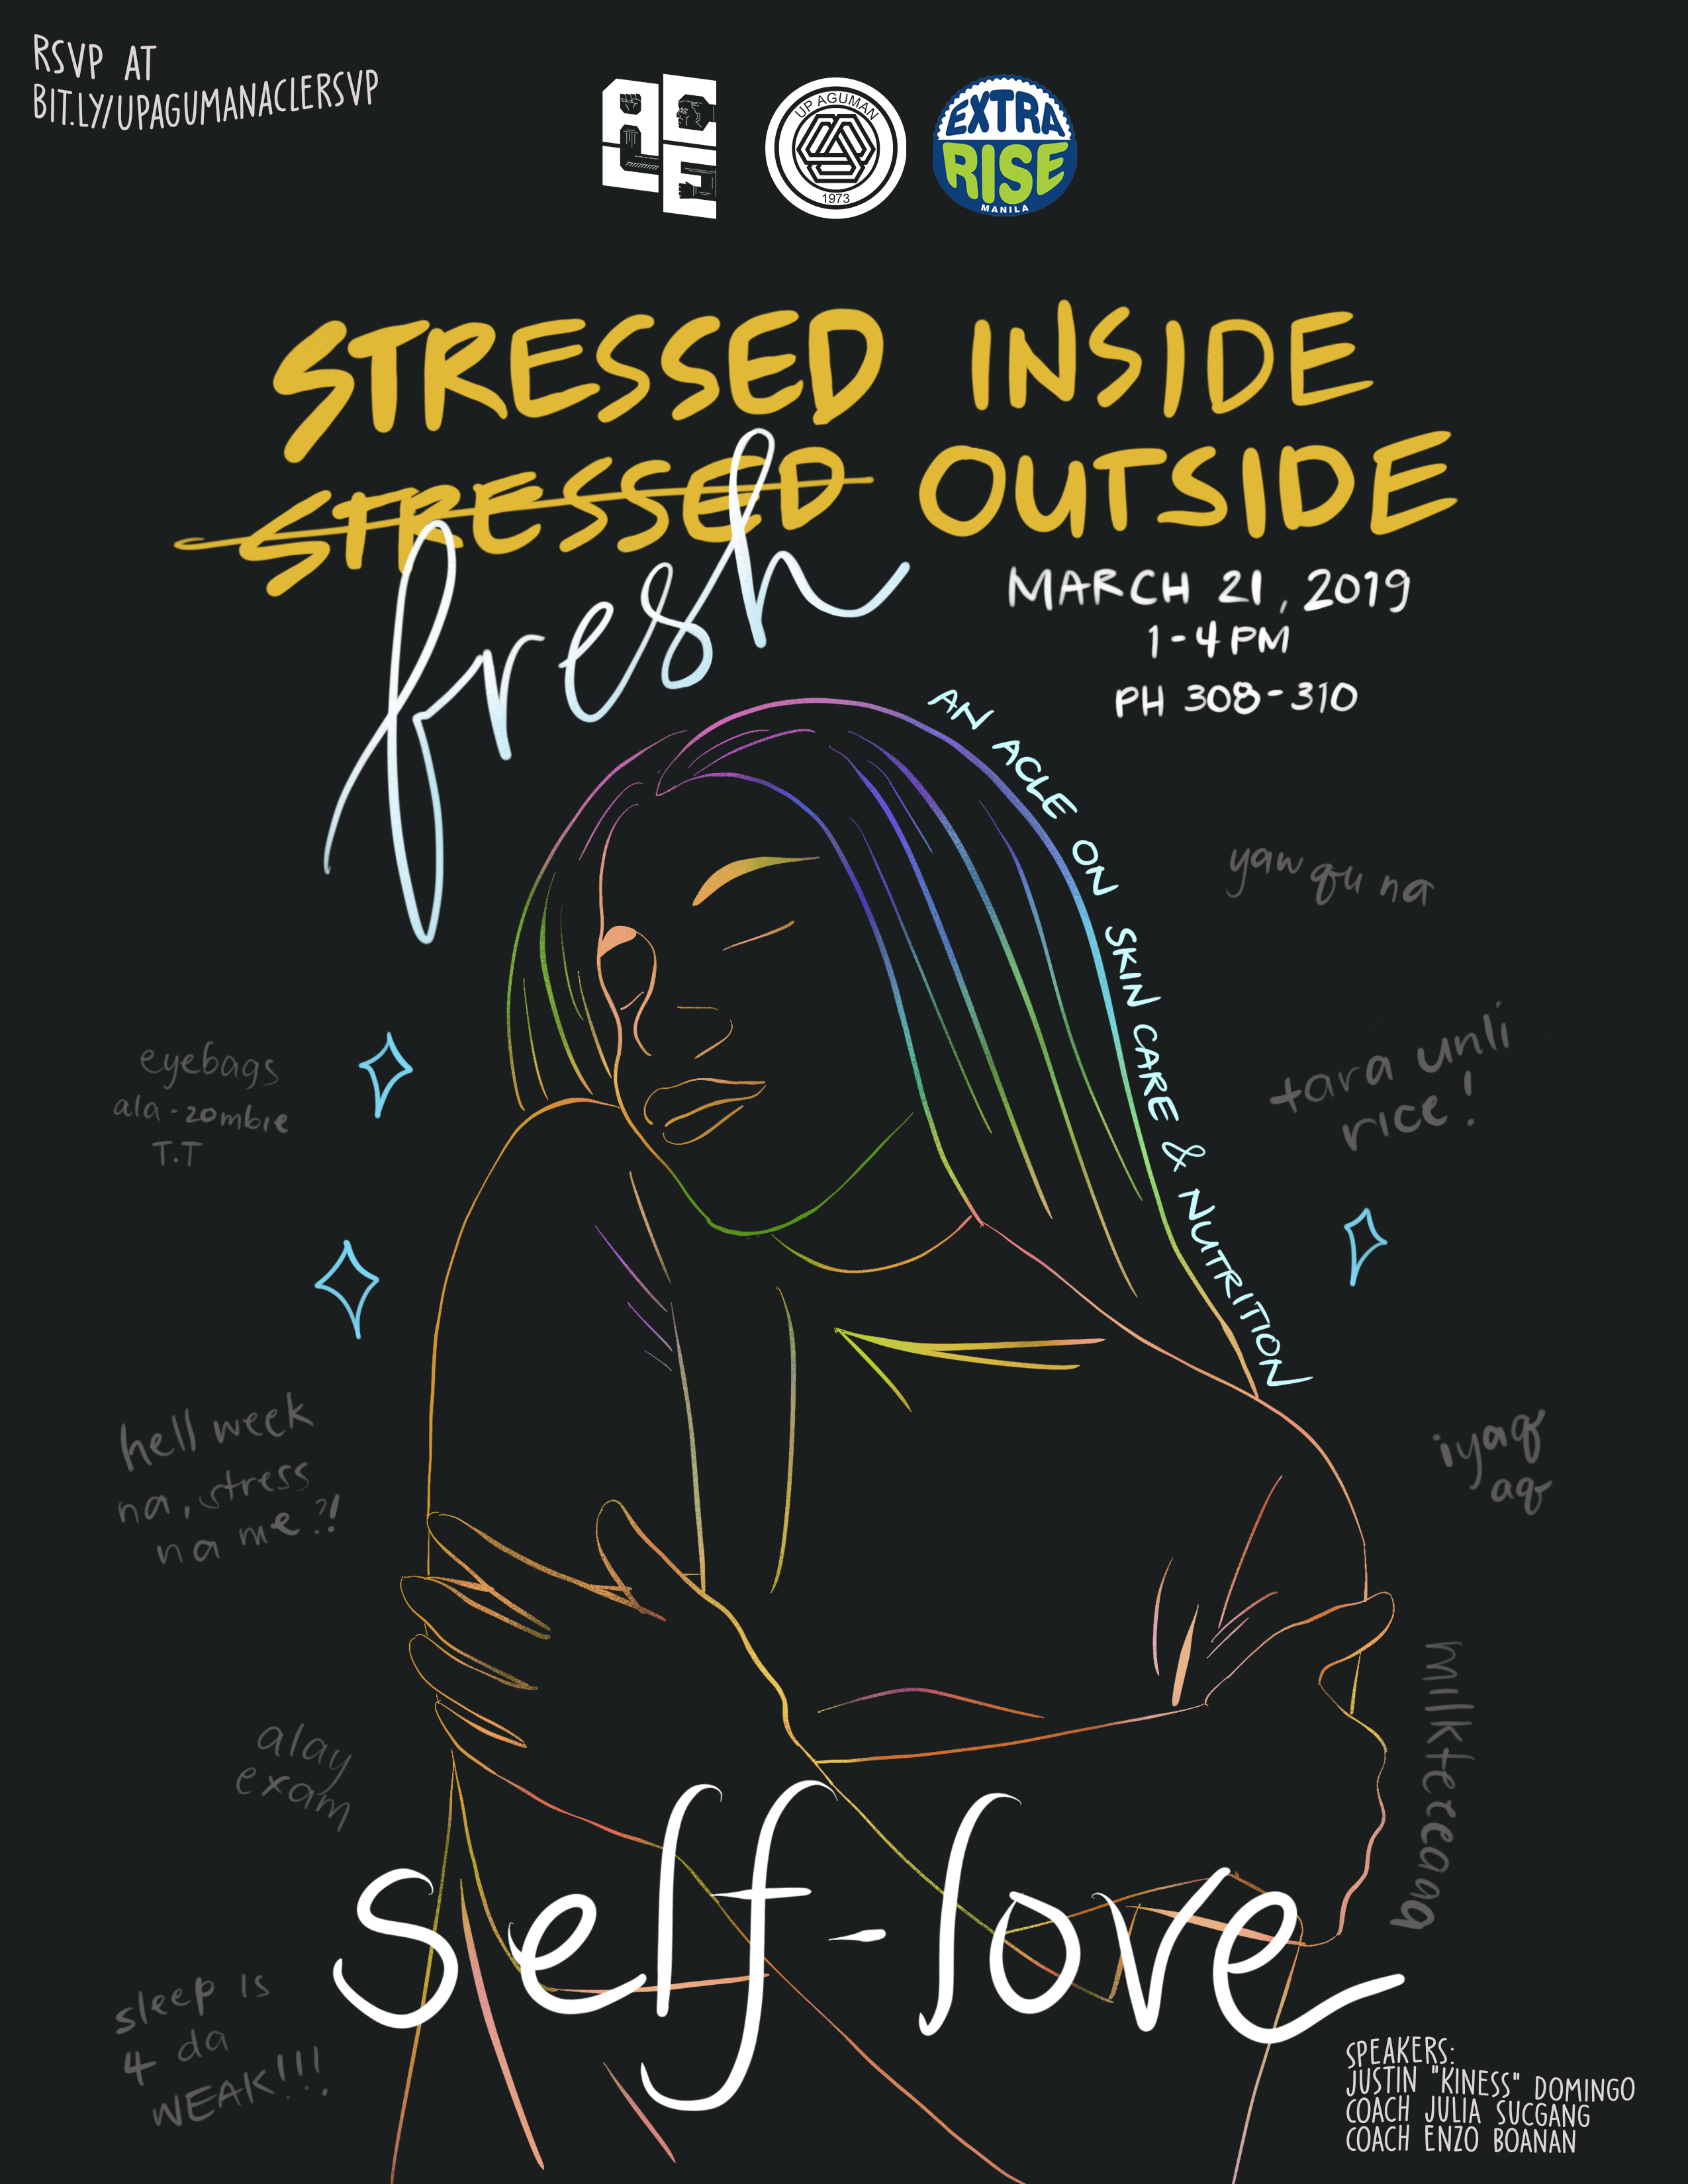 RSVP AT
BIT.LY/UPAGUMANACLERSVP
ACLE
UP AGUMAN
1973
EXTRA
RISE
MANILA
STRESSED INSIDE
STRESSED OUTSIDE
fresh
MARCH 21, 2019
1-4 PM
PH 308-310
AN ACLE ON SKIN CARE & NUTRITION
yaw qu na
eyebags
ala-zombie
T.T
tara unli
rice!
hell week
na, stress
na me?!
iyaq
aq
alay
exam
milkteeeaaa
self-love
sleep is
4 da
WEAK!!!
SPEAKERS:
JUSTIN "KINESS" DOMINGO
COACH JULIA SUCGANG
COACH ENZO BOANAN